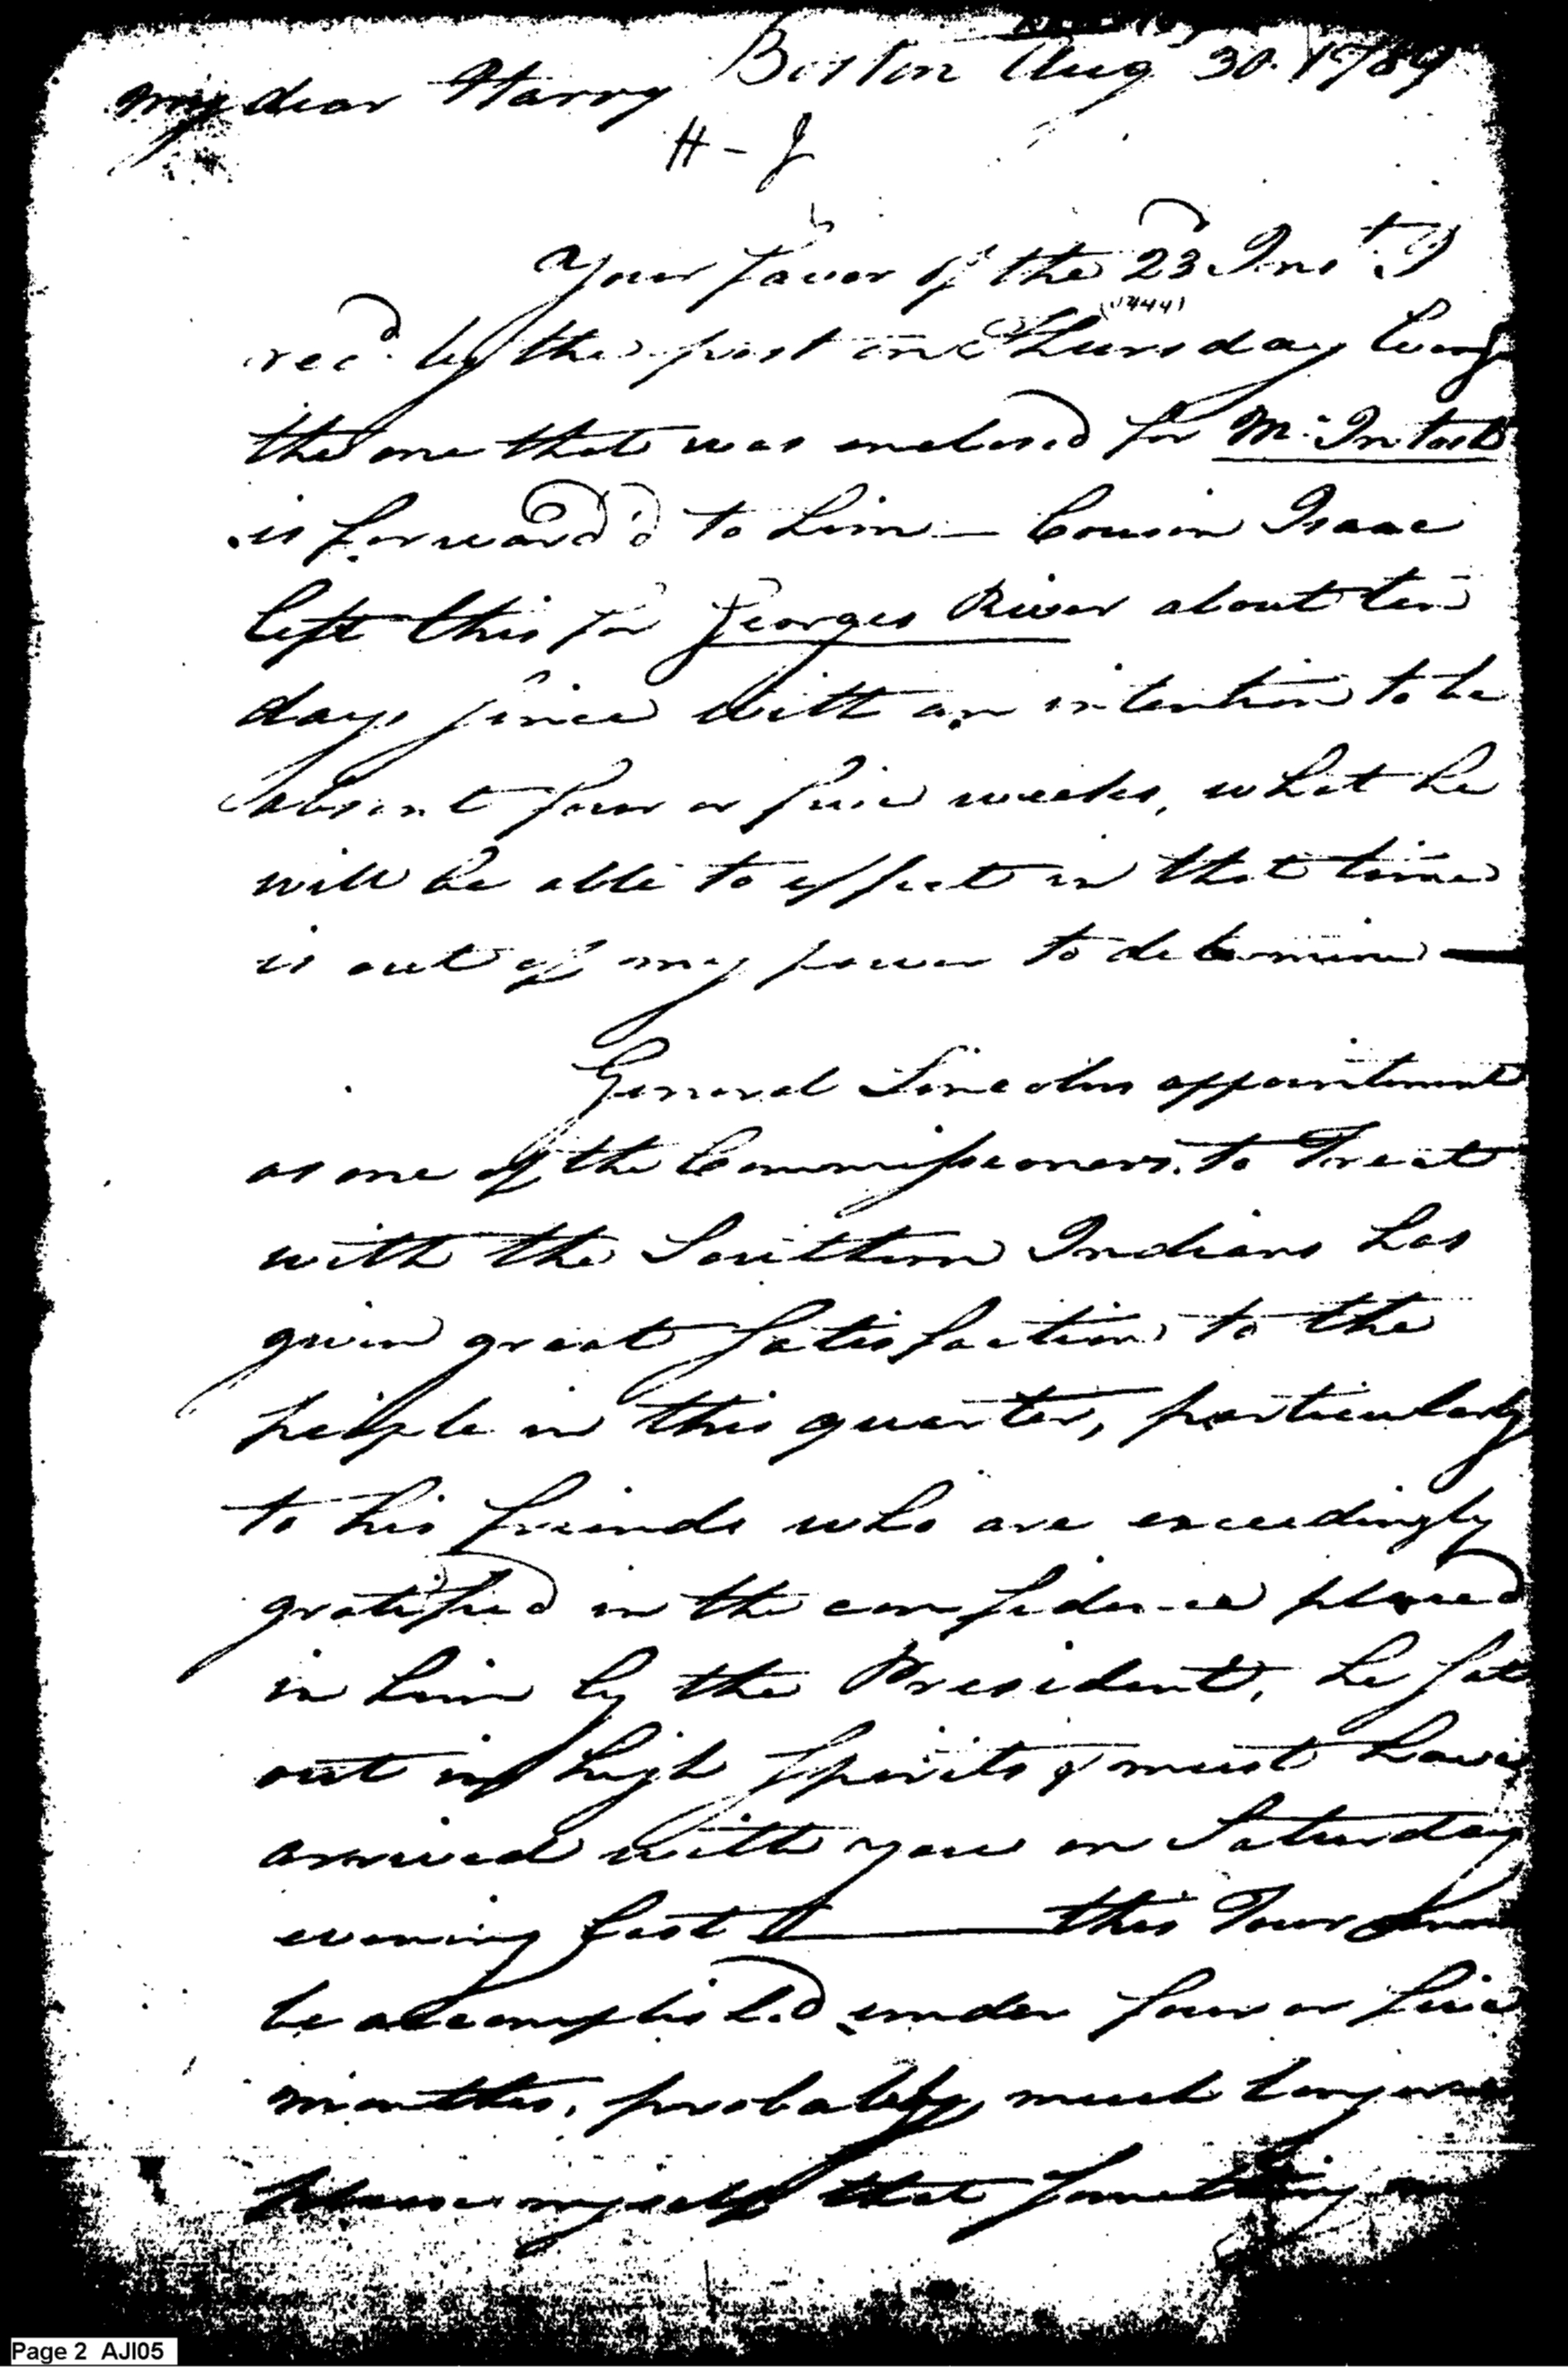 Boston Aug 30. 1789
my dear Harry
H - J
Your favor of the 23 Inst. I
rec'd by the post on Thursday Eveng
the one that was enclosed for Mc. Intosh
is forward'd to him — Cousin Isaac
left this for Georges River about ten
days since with an intention to be
absent four or five weeks, what he
will be able to effect in that time
is out of my power to determine —
General Lincolns appointment
as one of the Commissioners to Treat
with the Southern Indians has
given great satisfaction to the
people in this quarter, particularly
to his friends who are exceedingly
gratified in the confidence placed
in him by the President, he sat
out in high spirits & must have
arrived with you on Saturday
evening last — this Tour
be accomplish'd under four or five
months, probably much longer
please myself that something
Page 2 AJI05